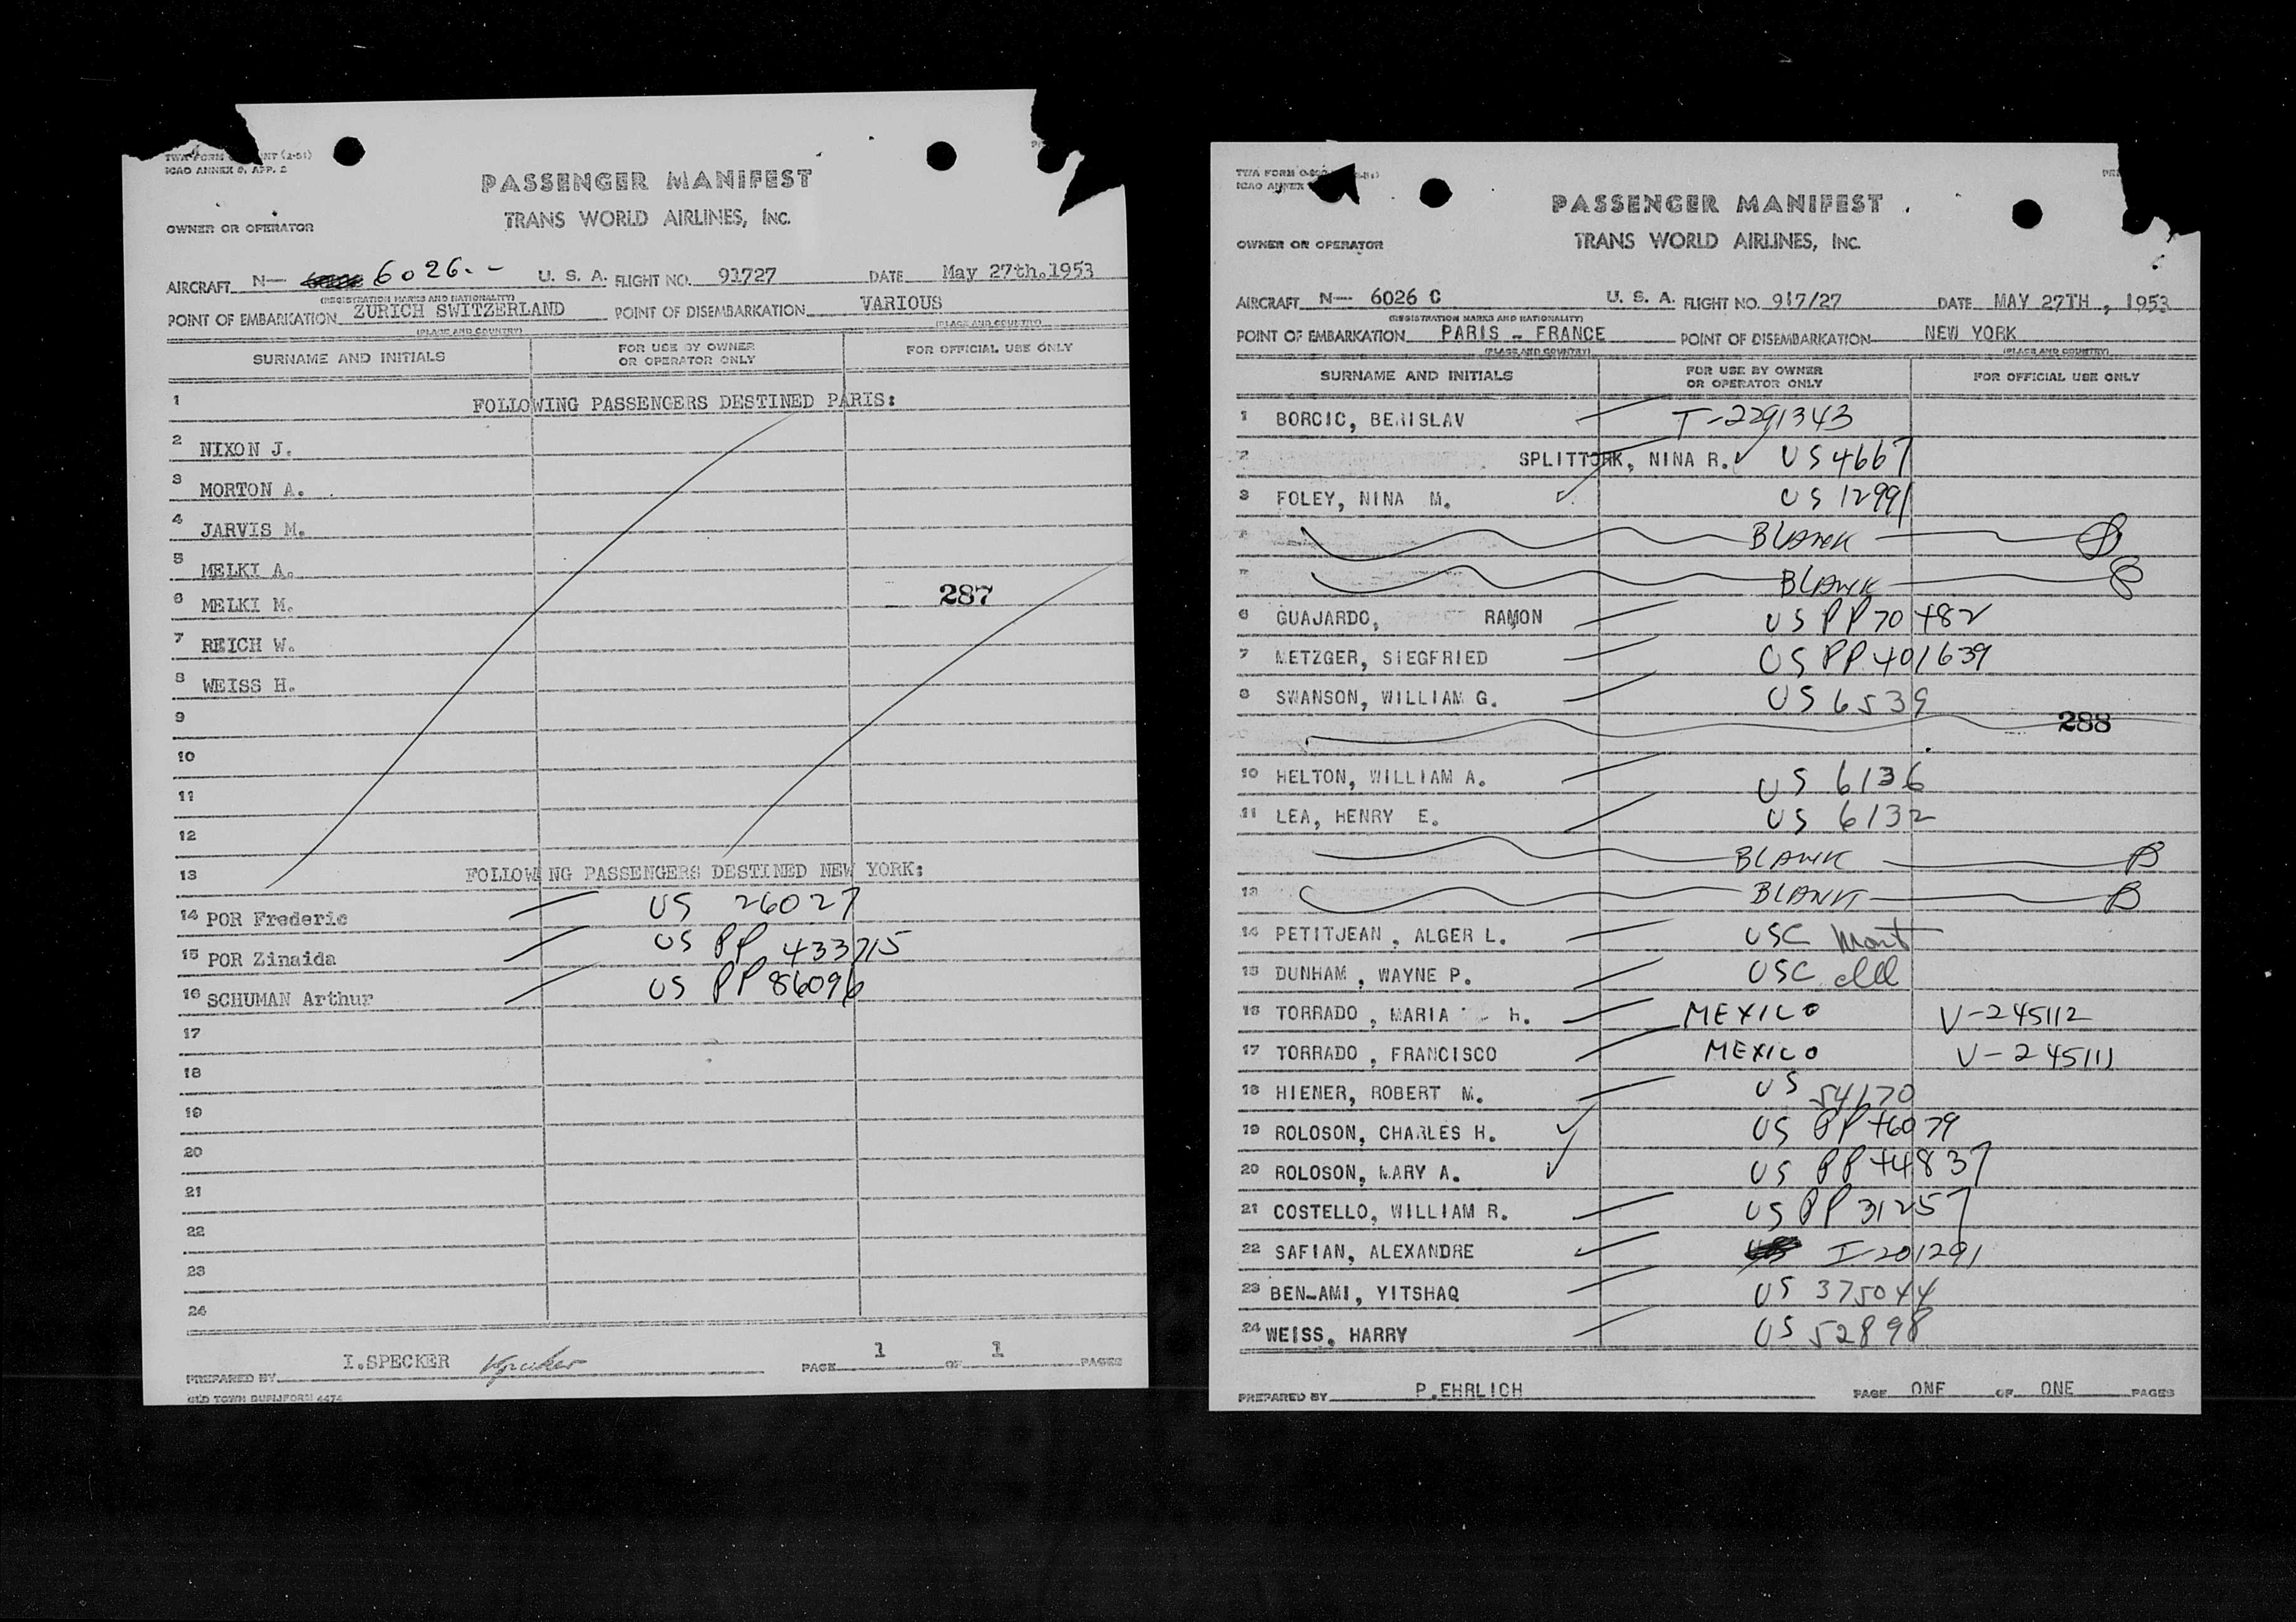 ICAO ANNEX 9, APP. 2
PASSENGER MANIFEST
TRANS WORLD AIRLINES, INC.
OWNER OR OPERATOR
AIRCRAFT N— 6026 U. S. A. FLIGHT NO. 91727 DATE May 27th.1953
(REGISTRATION MARKS AND NATIONALITY)
POINT OF EMBARKATION ZURICH SWITZERLAND POINT OF DISEMBARKATION VARIOUS
(PLACE AND COUNTRY) (PLACE AND COUNTRY)
SURNAME AND INITIALS FOR USE BY OWNER OR OPERATOR ONLY FOR OFFICIAL USE ONLY
1 FOLLOWING PASSENGERS DESTINED PARIS:
2 NIXON J.
3 MORTON A.
4 JARVIS M.
5 MELKI A.
287
6 MELKI M.
7 REICH W.
8 WEISS H.
9
10
11
12
13 FOLLOWING PASSENGERS DESTINED NEW YORK:
14 POR Frederic US 26027
15 POR Zinaida US PP 433715
16 SCHUMAN Arthur US PP 86096
17
18
19
20
21
22
23
24
PREPARED BY I.SPECKER PAGE 1 OF 1 PAGES
OLD TOWN DUPLIFORM 4474
TWA FORM
ICAO ANNEX
PASSENGER MANIFEST
TRANS WORLD AIRLINES, INC.
OWNER OR OPERATOR
AIRCRAFT N— 6026 C U. S. A. FLIGHT NO. 917/27 DATE MAY 27TH, 1953
(REGISTRATION MARKS AND NATIONALITY)
POINT OF EMBARKATION PARIS - FRANCE POINT OF DISEMBARKATION NEW YORK
(PLACE AND COUNTRY) (PLACE AND COUNTRY)
SURNAME AND INITIALS FOR USE BY OWNER OR OPERATOR ONLY FOR OFFICIAL USE ONLY
1 BORCIC, BERISLAV T-2291343
2 SPLITTORK, NINA R. US 4667
3 FOLEY, NINA M. US 12991
BLANK
BLANK
6 GUAJARDO, RAMON US PP 70482
7 METZGER, SIEGFRIED US PP 401639
8 SWANSON, WILLIAM G. US 6539
288
10 HELTON, WILLIAM A. US 6136
11 LEA, HENRY E. US 6132
BLANK
13 BLANK
14 PETITJEAN, ALGER L. USC Mont
15 DUNHAM, WAYNE P. USC
16 TORRADO, MARIA H. MEXICO V-245112
17 TORRADO, FRANCISCO MEXICO V-245111
18 HIENER, ROBERT M. US 54170
19 ROLOSON, CHARLES H. US PP 46079
20 ROLOSON, MARY A. US PP 44837
21 COSTELLO, WILLIAM R. US PP 31257
22 SAFIAN, ALEXANDRE I-201291
23 BEN-AMI, YITSHAQ US 375044
24 WEISS, HARRY US 52898
PREPARED BY P.EHRLICH PAGE ONE OF ONE PAGES